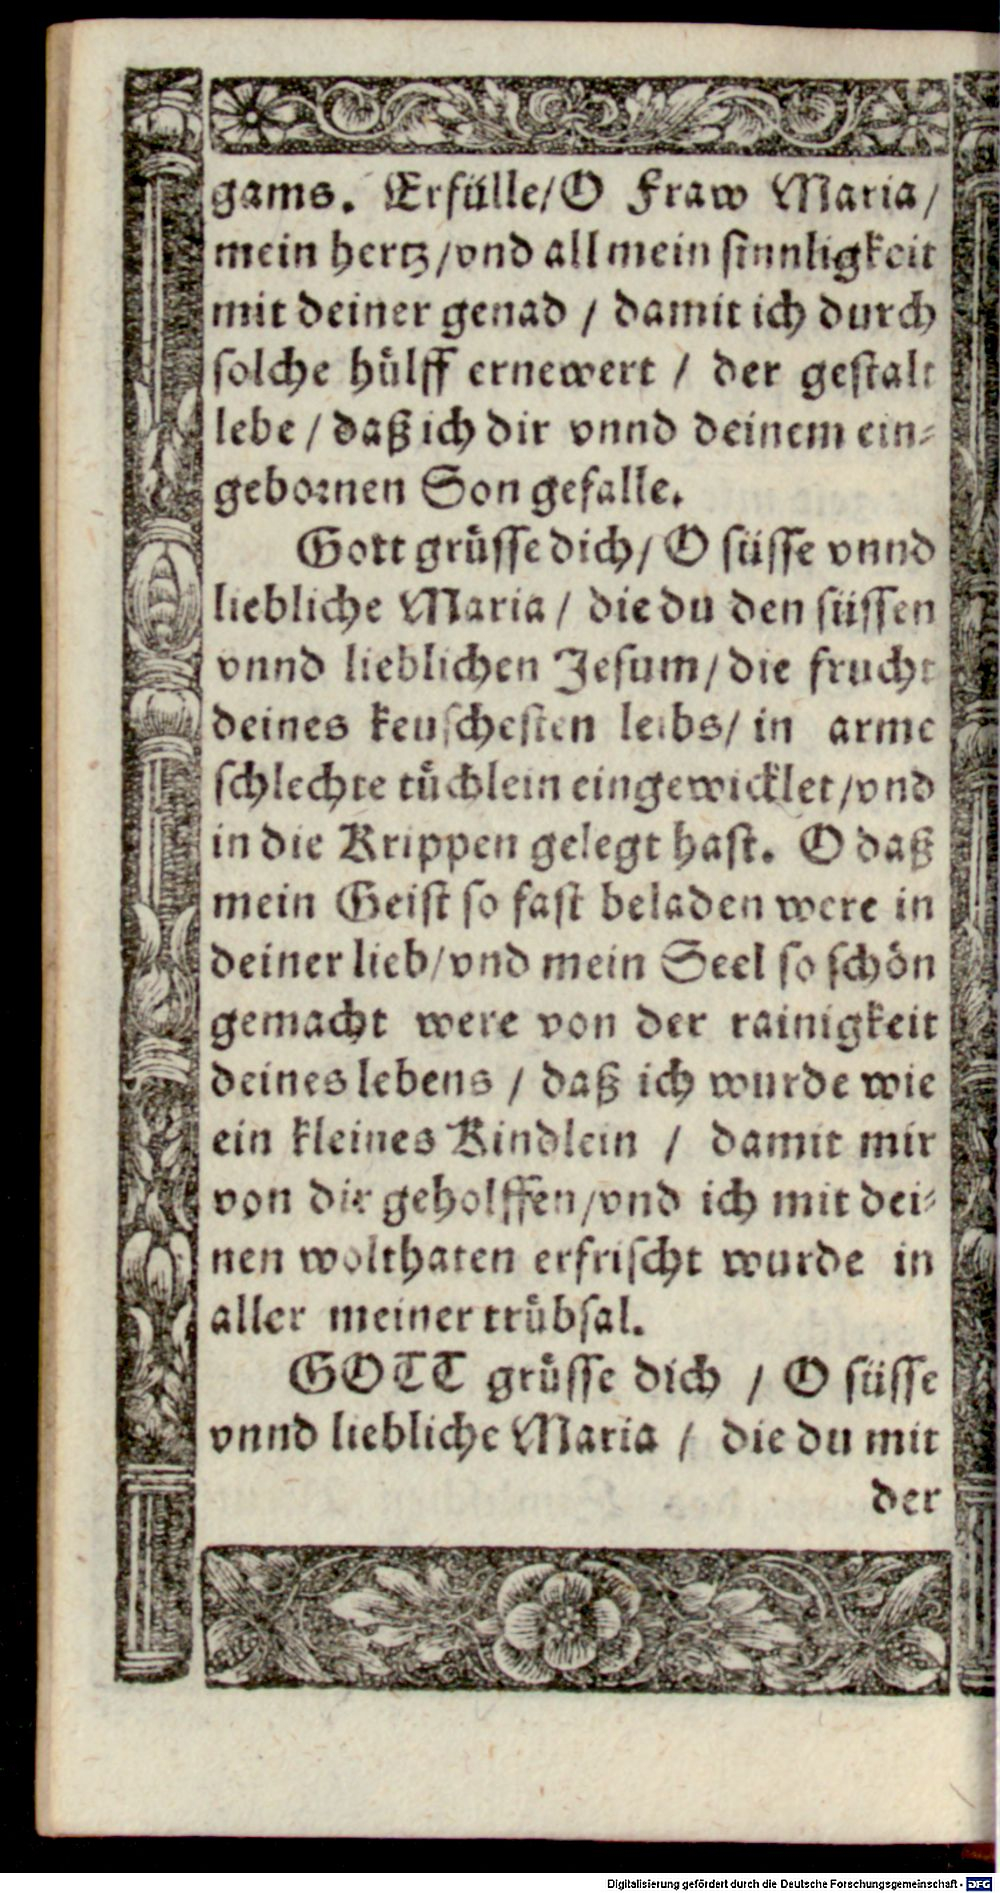 gams. Erfülle/O Fraw Maria/
mein hertz/vnd all mein sinnligkeit
mit deiner genad / damit ich durch
solche hülff ernewert / der gestalt
lebe / daß ich dir vnnd deinem ein-
gebornen Son gefalle.
Gott grüsse dich/ O süsse vnnd
liebliche Maria/ die du den süssen
vnnd lieblichen Jesum/ die frucht
deines keuschesten leibs/ in arme
schlechte tüchlein eingewicklet/vnd
in die Krippen gelegt hast. O daß
mein Geist so fast beladen were in
deiner lieb/vnd mein Seel so schön
gemacht were von der rainigkeit
deines lebens / daß ich wurde wie
ein kleines Kindlein / damit mir
von dir geholffen/vnd ich mit dei-
nen wolthaten erfrischt wurde in
aller meiner trübsal.
GOTT grüsse dich / O süsse
vnnd liebliche Maria / die du mit
der
Digitalisierung gefördert durch die Deutsche Forschungsgemeinschaft - DFG